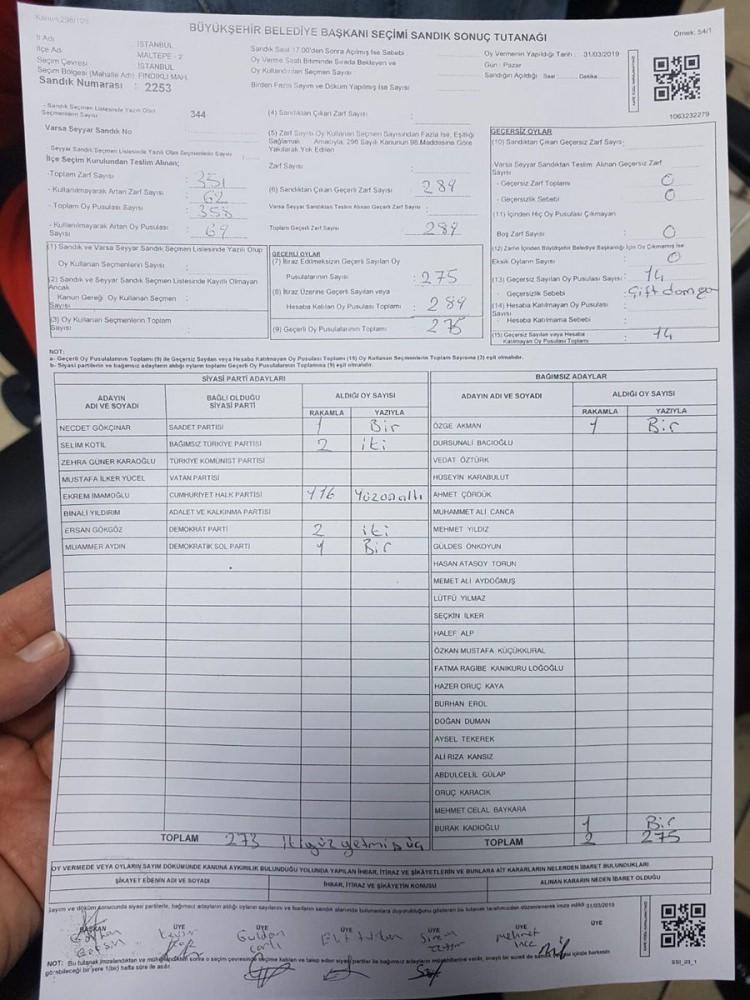 Kanun:298/105
BÜYÜKŞEHİR BELEDİYE BAŞKANI SEÇİMİ SANDIK SONUÇ TUTANAĞI
Örnek: 54/1
İl Adı : İSTANBUL
İlçe Adı : MALTEPE - 2
Seçim Çevresi : İSTANBUL
Seçim Bölgesi (Mahalle Adı) FINDIKLI MAH.
Sandık Numarası : 2253
Sandık Saat 17:00'den Sonra Açılmış İse Sebebi
Oy Verme Saati Bitiminde Sırada Bekleyen ve
Oy Kullandırılan Seçmen Sayısı
Birden Fazla Sayım ve Döküm Yapılmış İse Sayısı
Oy Vermenin Yapıldığı Tarih : 31/03/2019
Gün : Pazar
Sandığın Açıldığı Saat: Dakika:
1063232279
- Sandık Seçmen Listesinde Yazılı Olan
Seçmenlerin Sayısı 344
Varsa Seyyar Sandık No
- Seyyar Sandık Seçmen Listesinde Yazılı Olan Seçmenlerin Sayısı
İlçe Seçim Kurulundan Teslim Alınan;
- Toplam Zarf Sayısı : 351
- Kullanılmayarak Artan Zarf Sayısı : 62
- Toplam Oy Pusulası Sayısı : 358
- Kullanılmayarak Artan Oy Pusulası
Sayısı : 69
(4) Sandıktan Çıkan Zarf Sayısı :
(5) Zarf Sayısı Oy Kullanan Seçmen Sayısından Fazla İse, Eşitliği
Sağlamak Amacıyla, 298 Sayılı Kanunun 98.Maddesine Göre
Yakılarak Yok Edilen
Zarf Sayısı :
(6) Sandıktan Çıkan Geçerli Zarf Sayısı : 289
Varsa Seyyar Sandıktan Teslim Alınan Geçerli Zarf Sayısı :
Toplam Geçerli Zarf Sayısı : 289
GEÇERSİZ OYLAR
(10) Sandıktan Çıkan Geçersiz Zarf Sayısı :
-Varsa Seyyar Sandıktan Teslim Alınan Geçersiz Zarf
Sayısı
- Geçersiz Zarf Toplamı : 0
- Geçersizlik Sebebi : 0
(11) İçinden Hiç Oy Pusulası Çıkmayan
Boş Zarf Sayısı : 0
(12) Zarfın İçinden Büyükşehir Belediye Başkanlığı İçin Oy Çıkmamış İse
Eksik Oyların Sayısı : 0
(13) Geçersiz Sayılan Oy Pusulası Sayısı : 14
- Geçersizlik Sebebi : Çift damga
(14) Hesaba Katılmayan Oy Pusulası
Sayısı
- Hesaba Katılmama Sebebi :
(15) Geçersiz Sayılan veya Hesaba
Katılmayan Oy Pusulası Toplamı : 14
(1) Sandık ve Varsa Seyyar Sandık Seçmen Listesinde Yazılı Olup
Oy Kullanan Seçmenlerin Sayısı :
(2) Sandık ve Seyyar Sandık Seçmen Listesinde Kayıtlı Olmayan
Ancak
Kanun Gereği Oy Kullanan Seçmen
Sayısı :
(3) Oy Kullanan Seçmenlerin Toplam
Sayısı :
GEÇERLİ OYLAR
(7) İtiraz Edilmeksizin Geçerli Sayılan Oy
Pusulalarının Sayısı : 275
(8) İtiraz Üzerine Geçerli Sayılan veya
Hesaba Katılan Oy Pusulası Toplamı : 289
(9) Geçerli Oy Pusulalarının Toplamı : 275
NOT:
a- Geçerli Oy Pusulalarının Toplamı (9) ile Geçersiz Sayılan veya Hesaba Katılmayan Oy Pusulası Toplamı (15) Oy Kullanan Seçmenlerin Toplam Sayısına (3) eşit olmalıdır.
b- Siyasi partilerin ve bağımsız adayların aldığı oyların toplamı Geçerli Oy Pusulalarının Toplamına (9) eşit olmalıdır.
SİYASİ PARTİ ADAYLARI
ADAYIN ADI VE SOYADI BAĞLI OLDUĞU SİYASİ PARTİ ALDIĞI OY SAYISI
RAKAMLA YAZIYLA
NECDET GÖKÇINAR SAADET PARTİSİ 1 Bir
SELİM KOTİL BAĞIMSIZ TÜRKİYE PARTİSİ 2 iki
ZEHRA GÜNER KARAOĞLU TÜRKİYE KOMÜNİST PARTİSİ
MUSTAFA İLKER YÜCEL VATAN PARTİSİ
EKREM İMAMOĞLU CUMHURİYET HALK PARTİSİ 116 Yüzonaltı
BİNALİ YILDIRIM ADALET VE KALKINMA PARTİSİ
ERSAN GÖKGÖZ DEMOKRAT PARTİ 2 iki
MUAMMER AYDIN DEMOKRATİK SOL PARTİ 1 Bir
TOPLAM 273 ikiyüzyetmişüç
BAĞIMSIZ ADAYLAR
ADAYIN ADI VE SOYADI ALDIĞI OY SAYISI
RAKAMLA YAZIYLA
ÖZGE AKMAN 1 Bir
DURSUNALİ BACIOĞLU
VEDAT ÖZTÜRK
HÜSEYİN KARABULUT
AHMET ÇÖRDÜK
MUHAMMET ALİ CANCA
MEHMET YILDIZ
GÜLDES ÖNKOYUN
HASAN ATASOY TORUN
MEMET ALİ AYDOĞMUŞ
LÜTFÜ YILMAZ
SEÇKİN İLKER
HALEF ALP
ÖZKAN MUSTAFA KÜÇÜKKURAL
FATMA RAGIBE KANIKURU LOĞOĞLU
HAZER ORUÇ KAYA
BURHAN EROL
DOĞAN DUMAN
AYSEL TEKEREK
ALİ RIZA KANSIZ
ABDULCELİL GÜLAP
ORUÇ KARACIK
MEHMET CELAL BAYKARA
BURAK KADIOĞLU 1 Bir
TOPLAM 2 275
OY VERMEDE VEYA OYLARIN SAYIM DÖKÜMÜNDE KANUNA AYKIRILIK BULUNDUĞU YOLUNDA YAPILAN İHBAR, İTİRAZ VE ŞİKAYETLERİN VE BUNLARA AİT KARARLARIN NELERDEN İBARET BULUNDUKLARI
ŞİKAYET EDENİN ADI VE SOYADI İHBAR, İTİRAZ VE ŞİKAYETİN KONUSU ALINAN KARARIN NEDEN İBARET OLDUĞU
31/03/2019
BAŞKAN ÜYE ÜYE ÜYE ÜYE ÜYE ÜYE
Gülden Elif Sinem mehmet
NOT: Bu tutanak imzalandıktan ve
bir yere 1(bir) hafta süre ile asılır.
SSI_23_1